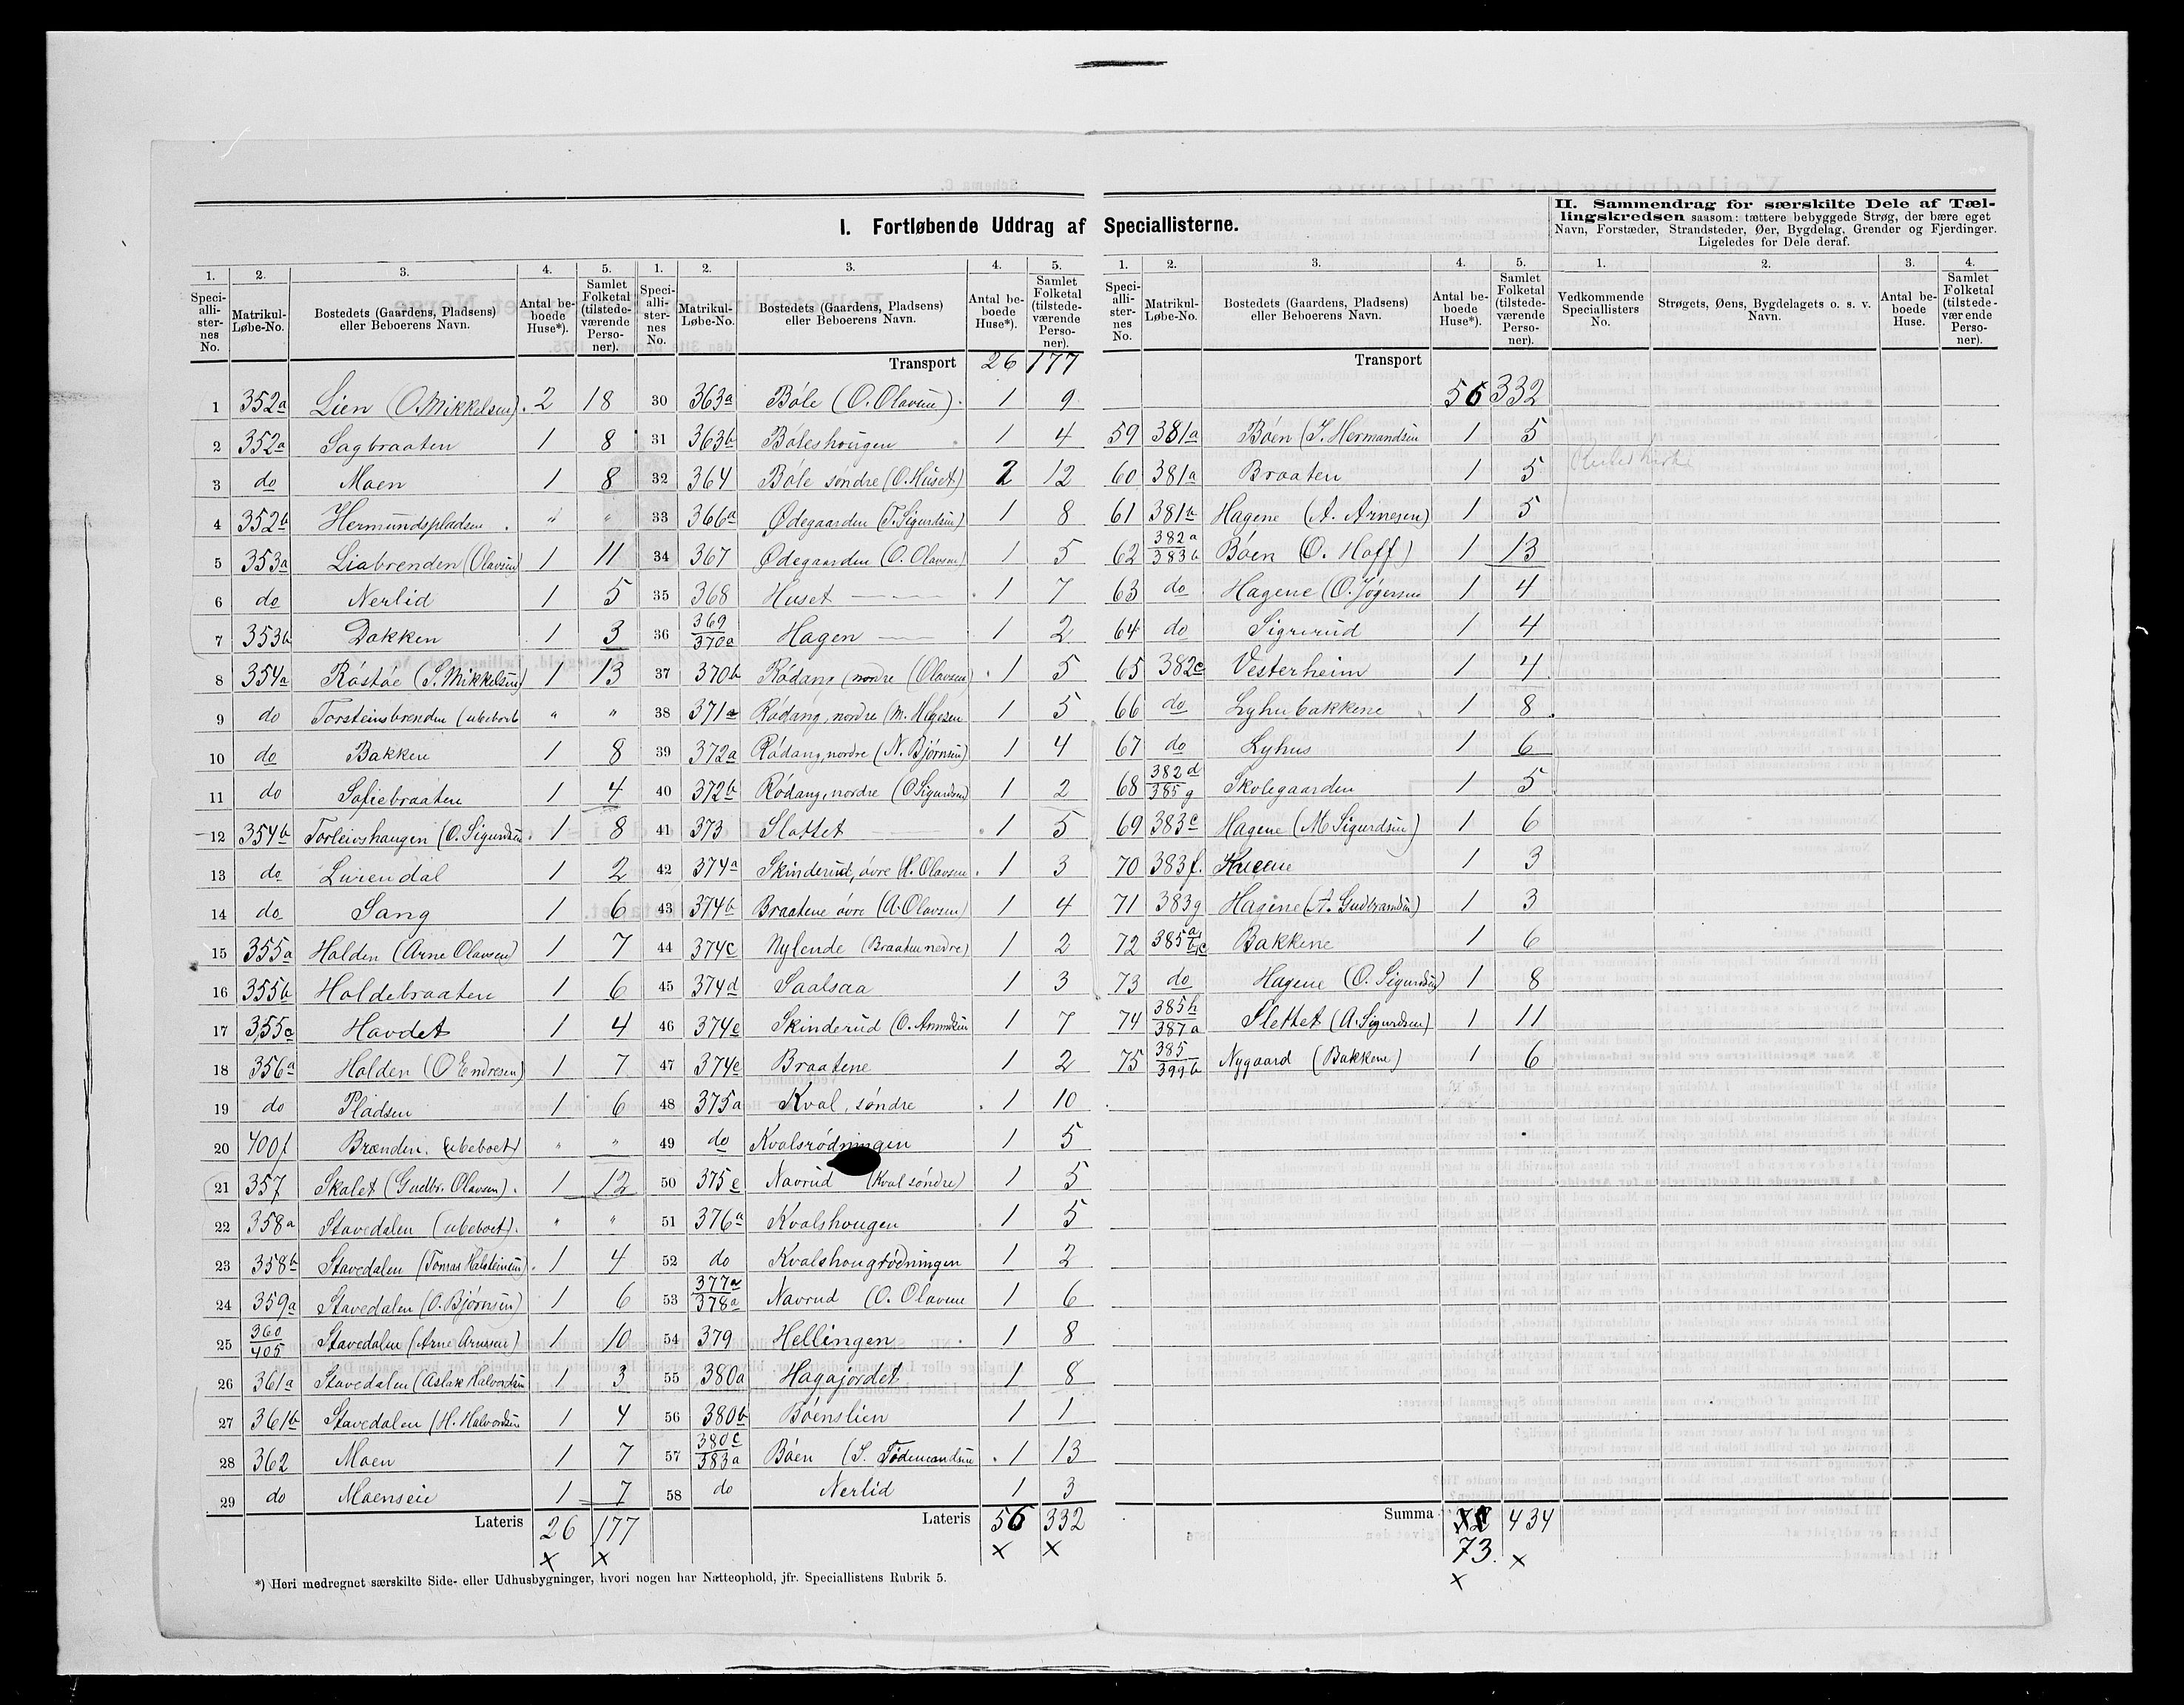 I. Fortløbende Uddrag af Speciallisterne.
II. Sammendrag for særskilte Dele af Tællingskredsen saasom: tættere bebyggede Strøg, der bære eget
Navn, Forstæder, Strandsteder, Øer, Bygdelag, Grender og Fjerdinger.
Ligeledes for Dele deraf.
1. 2. 3. 4. 5.
Speciallisternes No. Matrikul-Løbe-No. Bostedets (Gaardens, Pladsens) eller Beboerens Navn. Antal beboede Huse*). Samlet Folketal (tilstedeværende Personer).
1 352a Lien (O. Mikkelsen) 2 18
2 352a Sagbraaten 1 8
3 do Moen 1 8
4 352b Hermundspladsen " "
5 353a Liabrenden (Olavsen) 1 11
6 do Nerlid 1 5
7 353b Dokken 1 3
8 354a Röstöe (S. Mikkelsen) 1 13
9 do Torsteinsbrenden (ubeboet) " "
10 do Bakken 1 8
11 do Sofiebraaten 1 4
12 354b Torleivshaugen (O. Sigurdsen 1 8
13 do Lurendal 1 2
14 do Sang 1 6
15 355a Holden (Arne Olavsen) 1 7
16 355b Holdebraaten 1 6
17 355c Hovdet 1 4
18 356a Holden (O Endresen) 1 7
19 do Pladsen 1 6
20 400f Brænden. (ubeboet) " "
21 357 Skalet (Gudbr. Olavsen). 1 12
22 358a Stavedalen (ubeboet). " "
23 358b Stavedalen (Tomas Halsteinsen). 1 4
24 359a Stavedalen (O. Bjørnsen) 1 6
25 360/405 Stavedalen (Arne Arnesen) 1 10
26 361a Stavedalen (Aslak Halvordsen 1 3
27 361b Stavedalen (H. Halvordsen 1 4
28 362 Moen 1 7
29 do Moenseie 1 7
Lateris 26 177
x x
1. 2. 3. 4. 5.
Speciallisternes No. Matrikul-Løbe-No. Bostedets (Gaardens, Pladsens) eller Beboerens Navn. Antal beboede Huse*). Samlet Folketal (tilstedeværende Personer).
Transport 26 177
30 363a Böle (O. Olavsen). 1 9
31 363b Böleshougen 1 4
32 364 Böle söndre (O. Huset) 2 12
33 366a Ødegaarden (T. Sigurdsen) 1 8
34 367 Ødegaarden (O. Olavsen) 1 5
35 368 Huset 1 7
36 369/370a Hagen 1 2
37 370b Rödang nordre (Olavsen) 1 5
38 371a Rödang, nordre (M. Helgesen 1 5
39 372a Rödang, nordre (N. Bjørnsen) 1 4
40 372b Rödang, nordre (O Sigurdsen) 1 2
41 373 Slottet 1 5
42 374a Skinderud, övre (K. Olavsen 1 3
43 374b Braatene övre (A. Olavsen) 1 4
44 374c Nylende (Braaten nedre) 1 2
45 374d Saalsaa 1 3
46 374e Skinderud (O. Amundsen 1 7
47 374e Braatene 1 2
48 375a Kval, söndre 1 10
49 do Kvalsrödningen 1 5
50 375c Navrud (Kval söndre) 1 5
51 376a Kvalshougen 1 5
52 do Kvalshougrödningen 1 2
53 377a/378a Navrud (O. Olavsen 1 6
54 379 Hellingen 1 8
55 380a Hagajordet 1 8
56 380b Böenslien 1 1
57 380c/383a Böen (S. Tødemandsen 1 13
58 do Nerlid 1 3
Lateris 56 332
x x
1. 2. 3. 4. 5.
Speciallisternes No. Matrikul-Løbe-No. Bostedets (Gaardens, Pladsens) eller Beboerens Navn. Antal beboede Huse*). Samlet Folketal (tilstedeværende Personer).
Transport
56 332
59 381a Böen (S. Hermandsen 1 5
60 381a Braaten 1 5
61 381b Hagene (A. Arnesen) 1 5
62 382a/383b Böen (O. Hoff) 1 13
63 do Hagene (O. Jögersen 1 4
64 do Sigrerud 1 4
65 382c Vesterheim 1 4
66 do Lyhusbakkene 1 8
67 do Lyhus 1 6
68 382d/385g Skolegaarden 1 5
69 383c Hagene (M Sigurdsen) 1 6
70 383f. 1 3
71 383g Hagene (A. Gudbrandsen) 1 3
72 385a b,c Bakkene 1 6
73 do Hagene (O. Sigurdsen) 1 8
74 385h/387a Slettet (A. Sigurdsen) 1 11
75 385/399b Nygaard (Bakkene) 1 6
Summa 434
73. x
x
1. 2. 3. 4.
Vedkommende Speciallisters No. Strøgets, Øens, Bygdelagets o. s. v. Navn. Antal beboede Huse. Samlet Folketal (tilstedeværende Personer).
*) Heri medregnet særskilte Side- eller Udhusbygninger, hvori nogen har Natteophold, jfr. Speciallistens Rubrik 5.